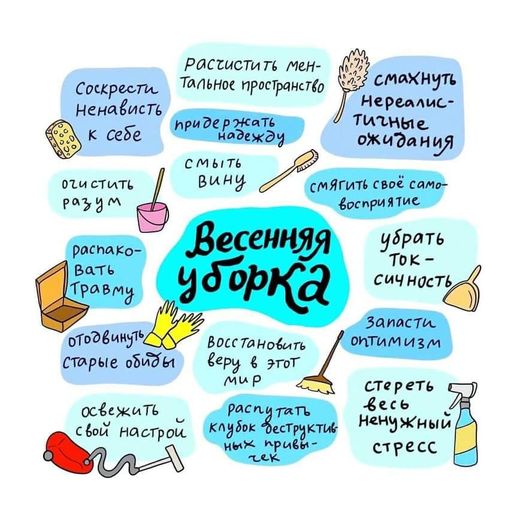 Соскрести
ненависть
к себе
расчистить мен-
тальное пространство
смахнуть
нереалис-
тичные
ожидания
придержать
надежду
смыть
вину
очистить
разум
смягить своё само-
восприятие
Весенняя
уборка
распако-
вать
травму
убрать
ток-
сичность
отодвинуть
старые обиды
Восстановить
веру в этот
мир
Запасти
оптимизм
освежить
свой настрой
распутать
клубок деструктив-
ных привы-
чек
стереть
весь
ненужный
стресс